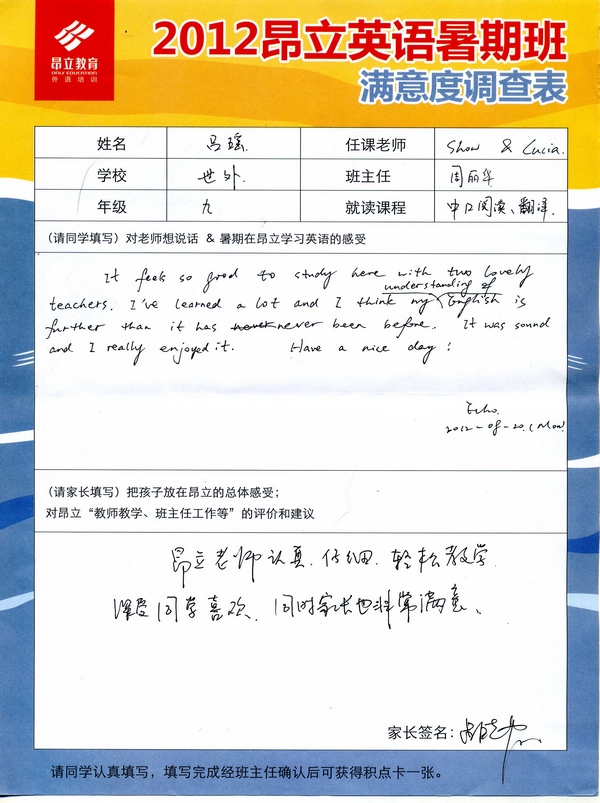 昂立教育
ONLY EDUCATION
外语培训
2012昂立英语暑期班
满意度调查表
姓名 吕瑶. 任课老师 Show & Lucia.
学校 世外. 班主任 周丽华
年级 九 就读课程 中口阅读、翻译.
(请同学填写) 对老师想说话 & 暑期在昂立学习英语的感受
It feels so good to study here with two lovely
teachers. I've learned a lot and I think my understanding of English is
further than it has never been before. It was sound
and I really enjoyed it. Have a nice day!
Echo.
2012-08-20. (Mon)
(请家长填写) 把孩子放在昂立的总体感受;
对昂立“教师教学、班主任工作等”的评价和建议
昂立老师认真.仔细.轻松教学
深受同学喜欢、同时家长也非常满意、
家长签名:
请同学认真填写,填写完成经班主任确认后可获得积点卡一张。